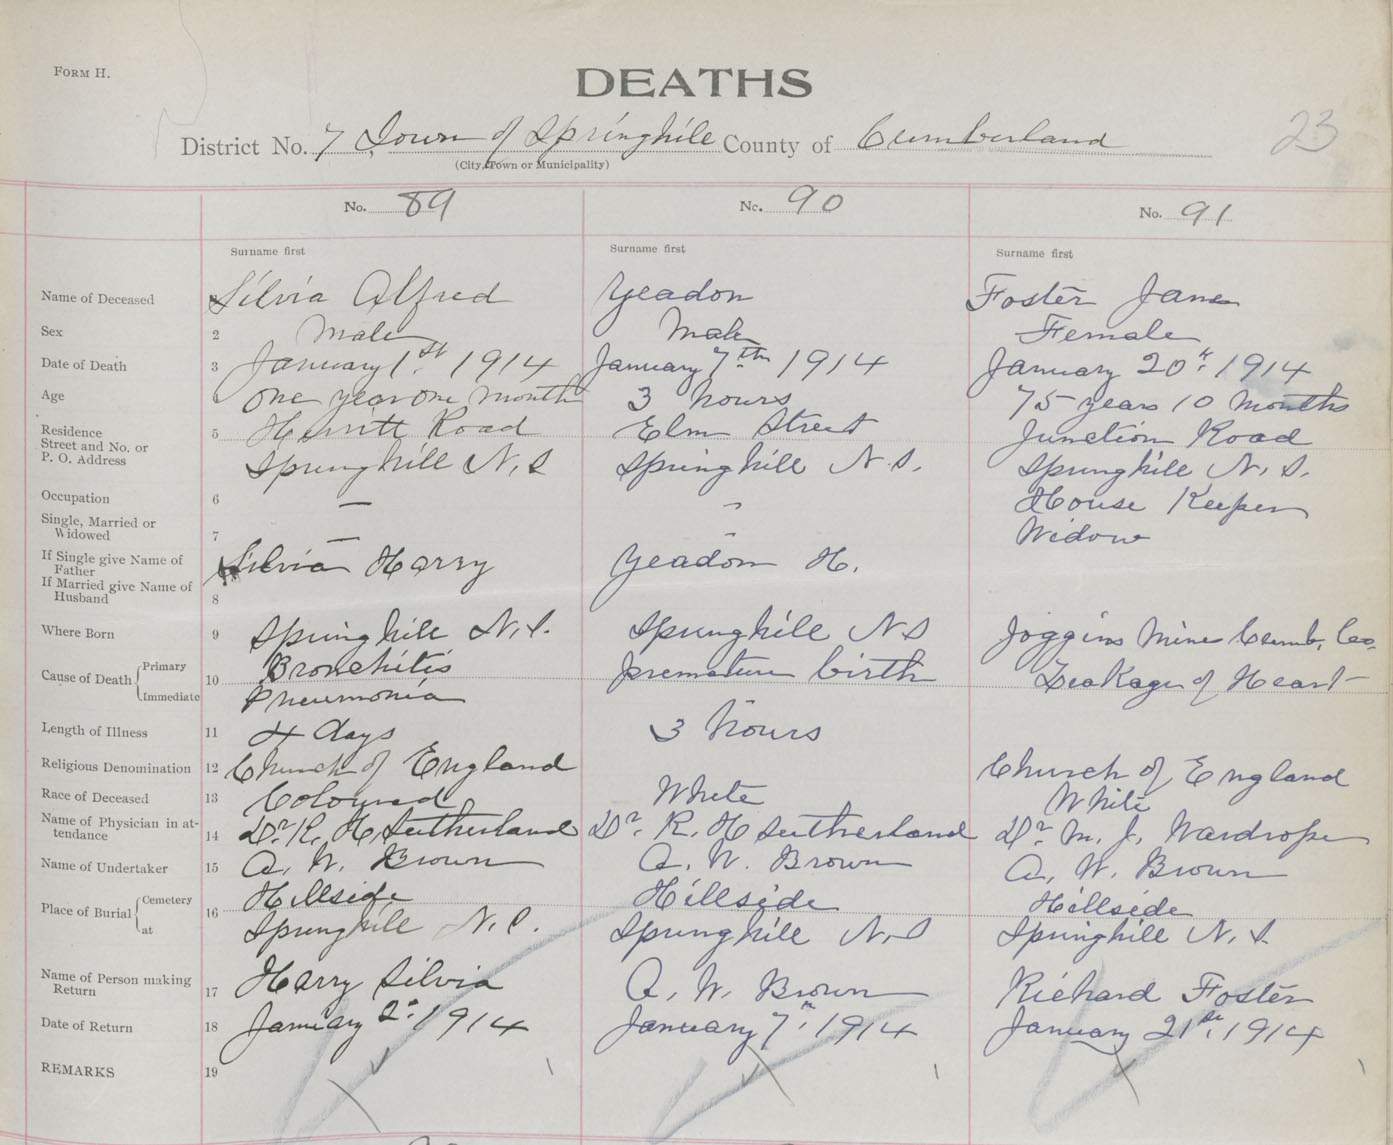 FORM H.
DEATHS
23
District No. 7 Town of Springhill County of Cumberland
(City, Town or Municipality)
No. 89 No. 90 No. 91
Surname first Surname first Surname first
Name of Deceased Silvia Alfred Yeadon Foster Jane
Sex 2 Male Male Female
Date of Death 3 January 1st 1914 January 7th 1914 January 20th 1914
Age one year one month 3 hours 75 years 10 months
Residence Street and No. or P. O. Address 5 Herritt Road Elm Street Junction Road
Springhill N.S Springhill N.S. Springhill N.S.
Occupation 6 — - House Keeper
Single, Married or Widowed 7 — - Widow
If Single give Name of Father Silvia Harry Yeadon H.
If Married give Name of Husband 8
Where Born 9 Springhill N.S. Springhill N.S Joggins Mines Cumb. Co.
Cause of Death { Primary 10 Bronchitis premature birth Leakage of Heart
Immediate Pneumonia
Length of Illness 11 4 days 3 hours
Religious Denomination 12 Church of England Church of England
Race of Deceased 13 Coloured White White
Name of Physician in attendance 14 Dr. R. H Sutherland Dr. R. H Sutherland Dr. M. J. Wardrope
Name of Undertaker 15 A. W. Brown A. W. Brown A. W. Brown
Place of Burial { Cemetery 16 Hillside Hillside Hillside
at Springhill N.S. Springhill N.S Springhill N.S.
Name of Person making Return 17 Harry Silvia A. W. Brown Richard Foster
Date of Return 18 January 2nd 1914 January 7th 1914 January 21st, 1914
REMARKS 19